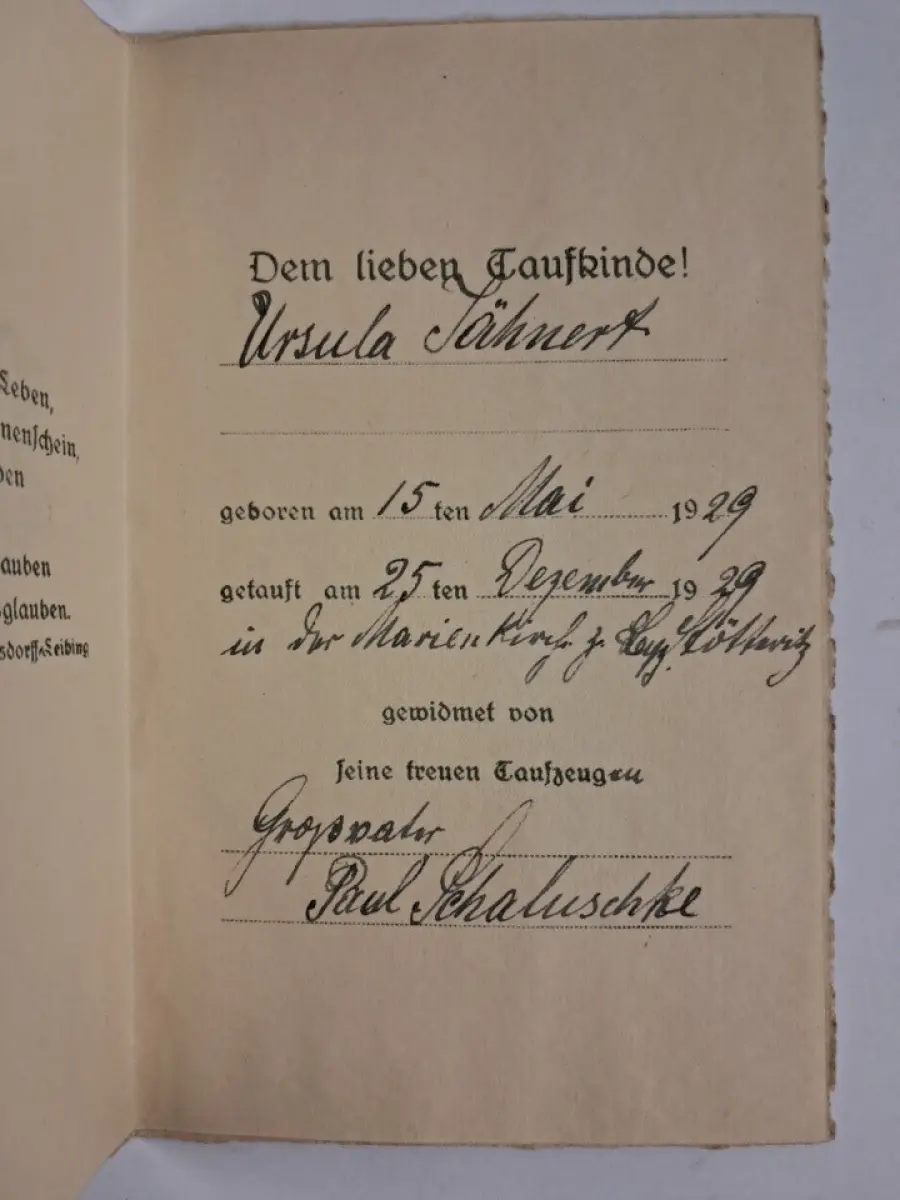 Leben,
nenschein,
den
auben
glauben.
sdorff-Leibing
Dem lieben Taufkinde!
Ursula Jähnert
geboren am 15 ten Mai 1929
getauft am 25 ten Dezember 1929
in der Marienkirch. z. Lpz. Stötteritz
gewidmet von
seine treuen Taufzeugen
Grossvater
Paul Schaluschke